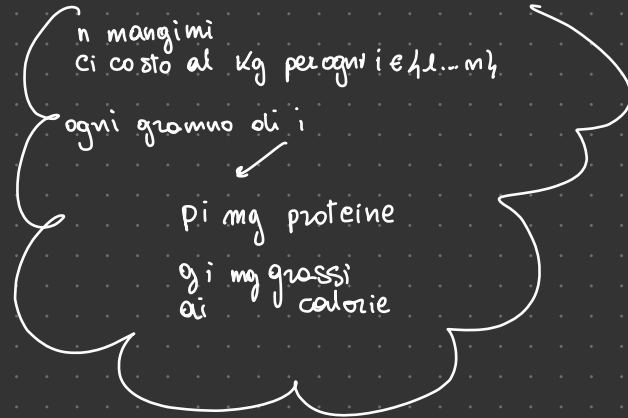 n mangimi
ci costo al Kg per ogni i ∈ {1...n}
ogni grammo di i
pi mg proteine
gi mg grassi
ai calorie